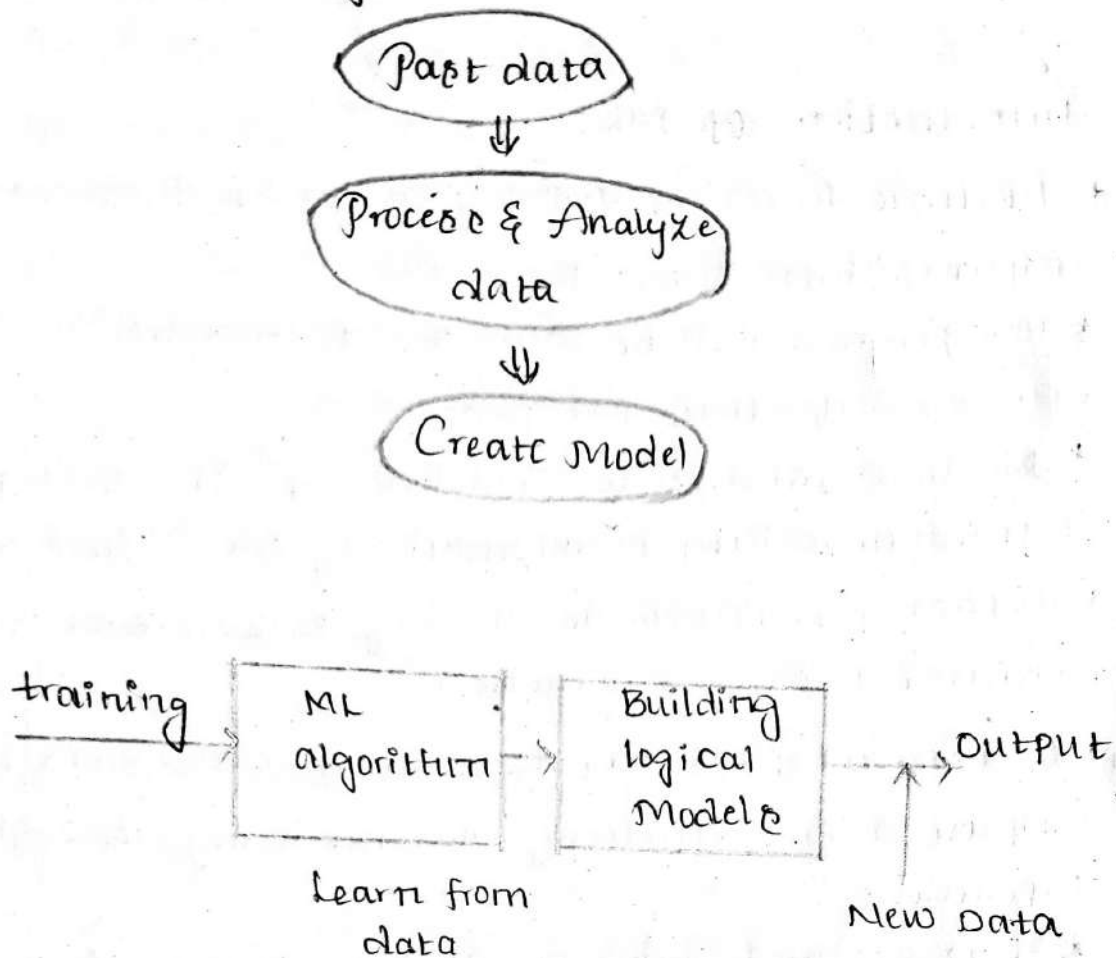 Past data
Process & Analyze
data
Create Model
training
ML
algorithm
Building
logical
Models
Output
Learn from
data
New Data